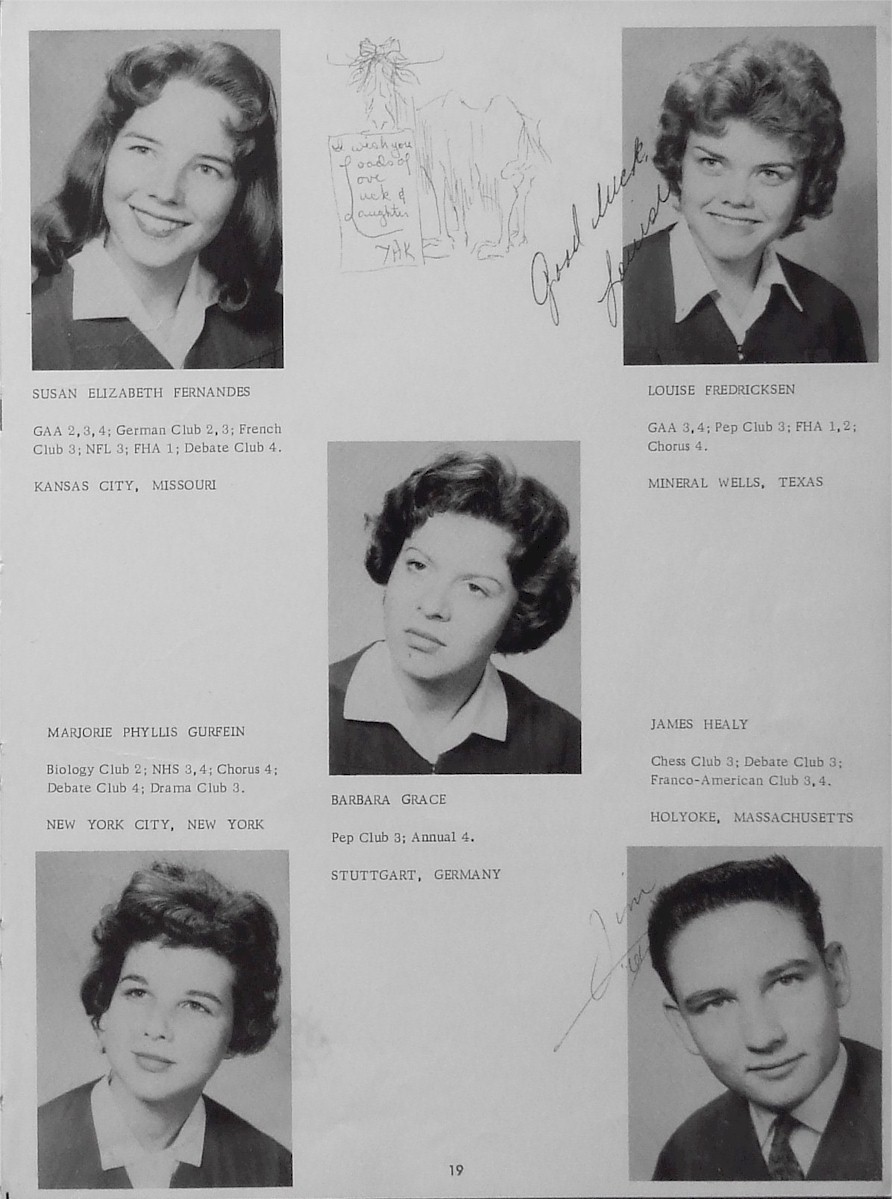 I wish you
Loads of
Love
Luck &
Laughter
YAK
Good luck,
Louise
SUSAN ELIZABETH FERNANDES
GAA 2,3,4; German Club 2,3; French
Club 3; NFL 3; FHA 1; Debate Club 4.
KANSAS CITY, MISSOURI
LOUISE FREDRICKSEN
GAA 3,4; Pep Club 3; FHA 1,2;
Chorus 4.
MINERAL WELLS, TEXAS
BARBARA GRACE
Pep Club 3; Annual 4.
STUTTGART, GERMANY
MARJORIE PHYLLIS GURFEIN
Biology Club 2; NHS 3,4; Chorus 4;
Debate Club 4; Drama Club 3.
NEW YORK CITY, NEW YORK
JAMES HEALY
Chess Club 3; Debate Club 3;
Franco-American Club 3,4.
HOLYOKE, MASSACHUSETTS
Jim
19